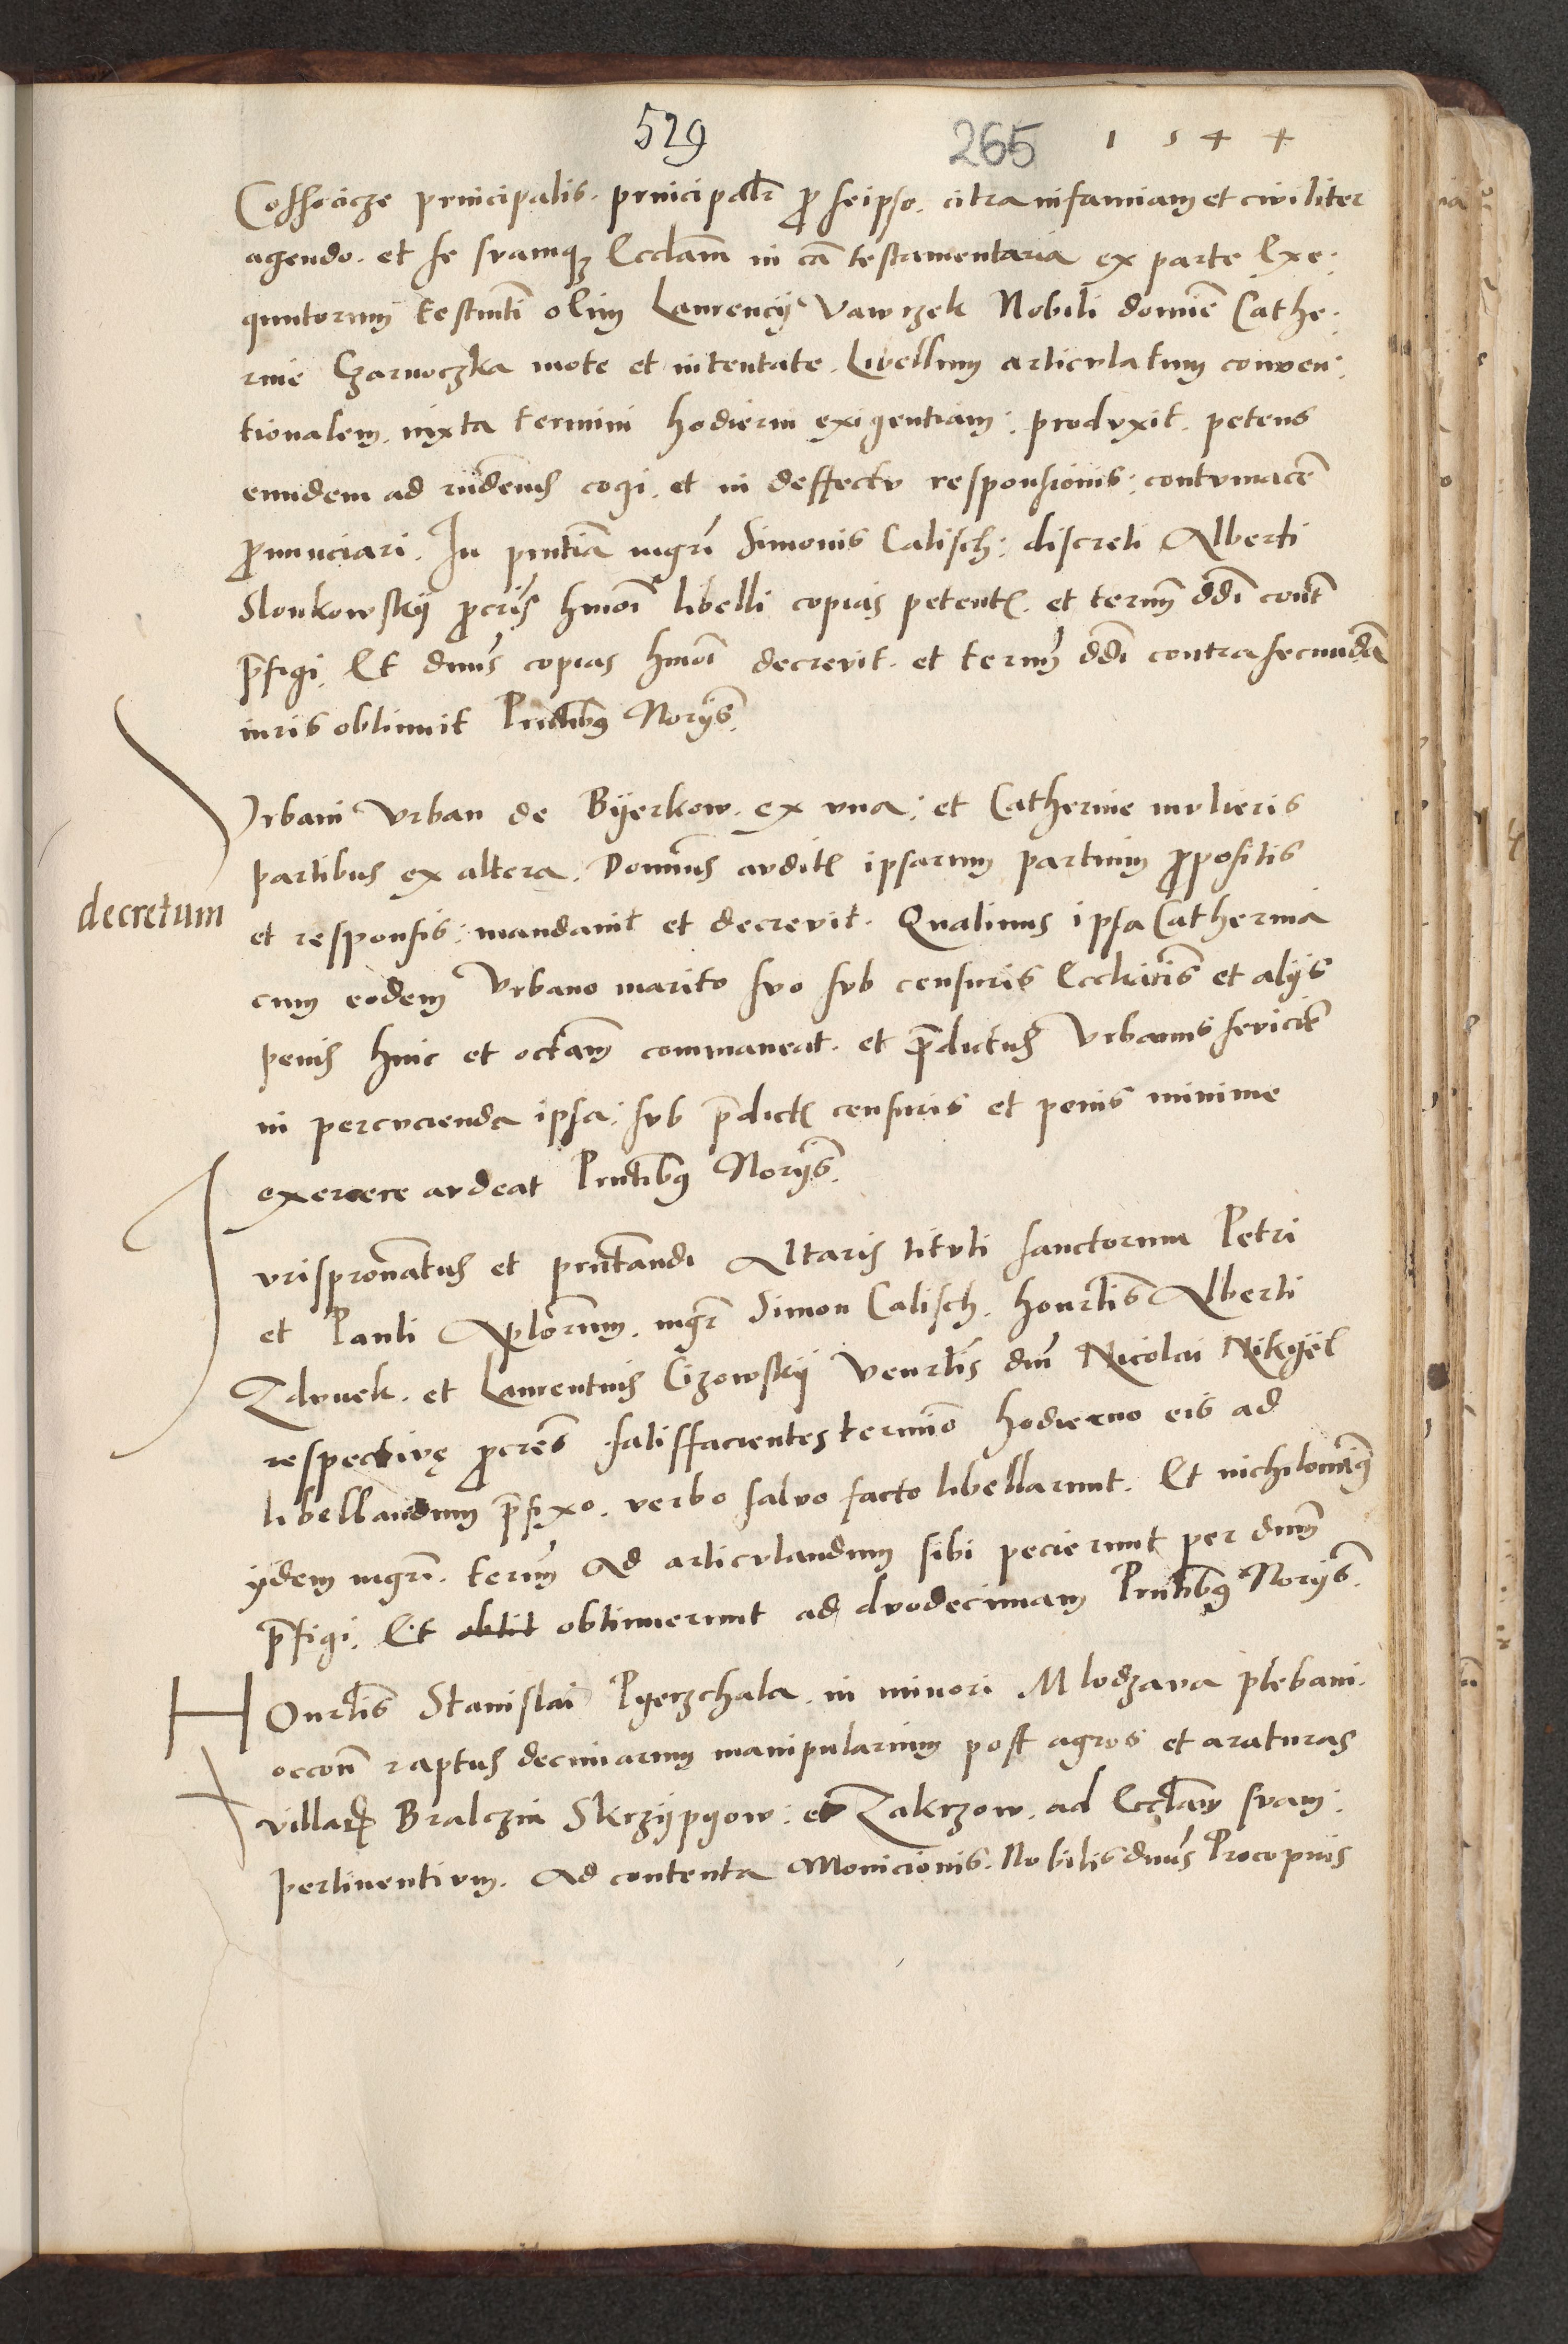 529 265 1544
Cossocicze principalis. principalr̄ ꝓ seipso. citra infamiam et civiliter
agendo. et se suamqꝫ Eccl̄iam in cā testamentaria ex parte Exe:
quutorum testm̄ti olim Laurencij Vawrzek Nobili domīe Cathe:
rine Czarnoczka mote et intentate. Libellum articulatum conven:
tionalem. iuxta termini hodierni exigentiam: produxit. petens
eundem ad rn̄dendū cogi. et in deffectu responsionis: contumacē
ꝓnunciari. In pn̄tiā mgr̄i Simonis Calisch: discreti Alberti
Slonkowskij ꝓcr̄is hmōi libelli copias petent. et termī dd̄i cont̄
p̄figi. Et dn̄us copias hmōi decrevit. et termī dd̄i contra secundā
iuris obtinuit Pn̄tibꝰ Norijs.
Vrbani Vrban de Byerkow. ex una: et Catherine mulieris
partibus ex altera. Domīnus audit ipsarum partium ꝓpositis
decretum
et responsis: mandavit et decrevit. Quatinus ipsa Catherina
cum eodem Vrbano marito suo sub censuris Eccl̄iacis et alijs
penis hinc et octavam commaneat. et p̄dictus Vrbanus seviciē
in percucienda ipsa: sub p̄dict censuris et penis minime
exercere audeat Pn̄tibꝰ Norijs.
Jurispronatus et pn̄tandi Altaris tituli sanctorum Petri
et Pauli Aplōrum. mgr̄ Simon Calisch. honrlīs Alberti
Zdunek. et Laurentius Cizowskij Venrlīs dn̄i Nicolai Nikyel
respectivę ꝓcrēs satisffacientes termīo hodierno eis ad
libellandum p̄fixo. verbo salvo facto libellarunt. Et nichilominꝰ
ijdem mgr̄i. termī ad articulandum sibi pecierunt per dn̄um
p̄figi. Et obtit obtinuerunt ad duodecimam Pn̄tibꝰ Norijs.
HOnrlīs Stanislai Pyerzchala. in minori Mlodzava plebani.
occon̄ raptus decimarum manipularium post agros et araturas
villaꝝ Bralczin Skrzijpyow: et Zakrzow. ad Eccl̄iam suam:
pertinentium. ad contenta Monicionis. Nobilis dn̄us Procopius